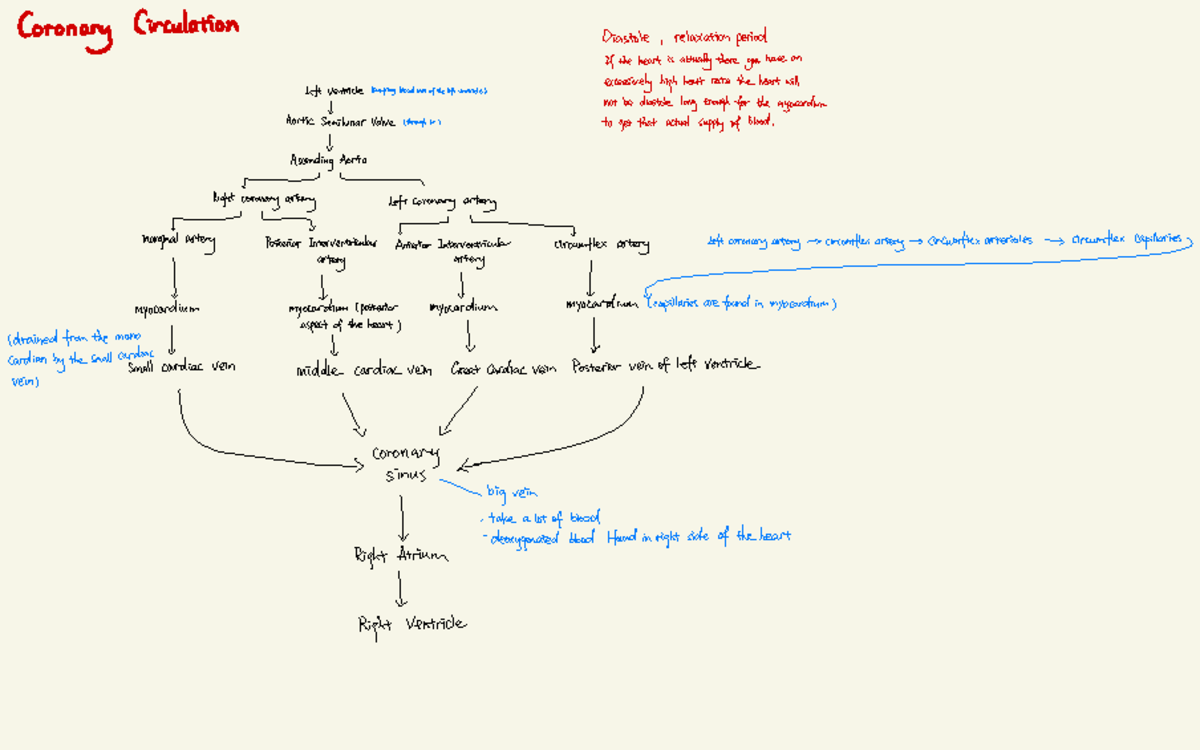 Coronary Circulation
Diastole, relaxation period
If the heart is actually there you have an
excessively high heart rate the heart will
not be diastole long enough for the myocardium
to get that actual supply of blood.
Left ventricle
Aortic Semilunar Valve (through it)
Ascending Aorta
Right coronary artery
Left coronary artery
marginal artery
Posterior Interventricular
artery
Anterior Interventricular
artery
circumflex artery
Left coronary artery → circumflex artery → circumflex arterioles → circumflex capillaries
myocardium
myocardium (posterior
aspect of the heart)
myocardium
myocardium (capillaries are found in myocardium)
(drained from the
cardian by the small cardiac
vein)
Small cardiac vein
middle cardiac vein
Great cardiac vein
Posterior vein of left ventricle
coronary
sinus
big vein
- take a lot of blood
- deoxygenated blood in right side of the heart
Right Atrium
Right Ventricle